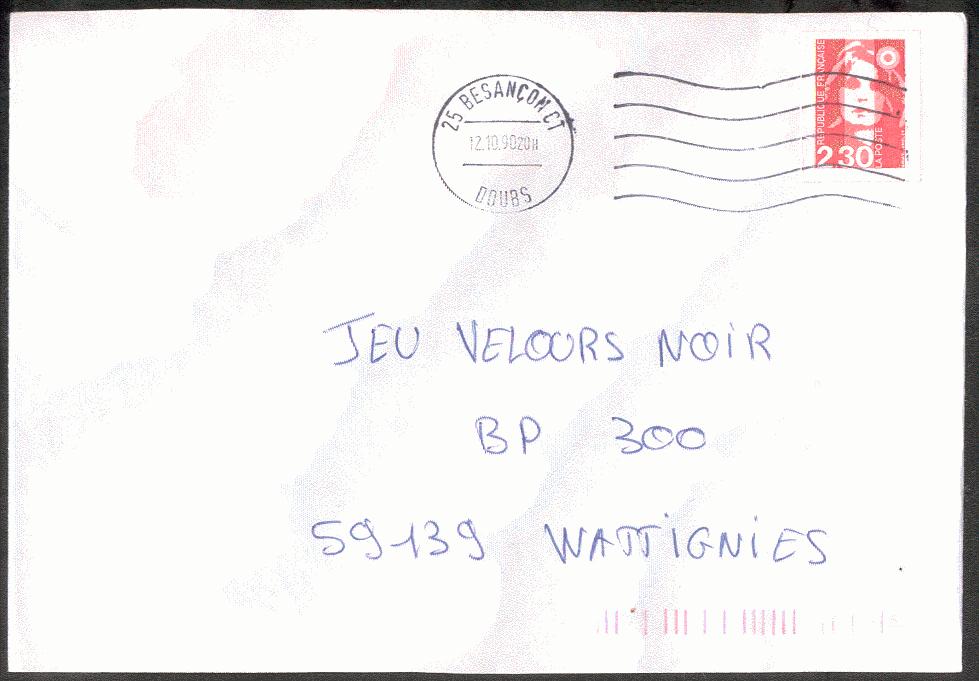 25 BESANÇON CT
12.10.90 20H
DOUBS
REPUBLIQUE FRANÇAISE
2,30
LA POSTE
JEU VELOURS NOIR
BP 300
59139 WATTIGNIES